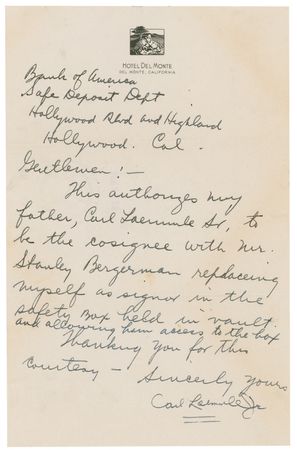 HOTEL DEL MONTE
DEL MONTE, CALIFORNIA
Bank of America
Safe Deposit Dept
Hollywood Blvd and Highland
Hollywood. Cal.
Gentlemen:—
This authorizes my
father, Carl Laemmle Sr, to
be the cosignee with Mr.
Stanley Bergerman replacing
myself as signor in the
safety box held in vault.
and allowing him access to the box
Thanking you for this
courtesy —
Sincerely Yours
Carl Laemmle Jr